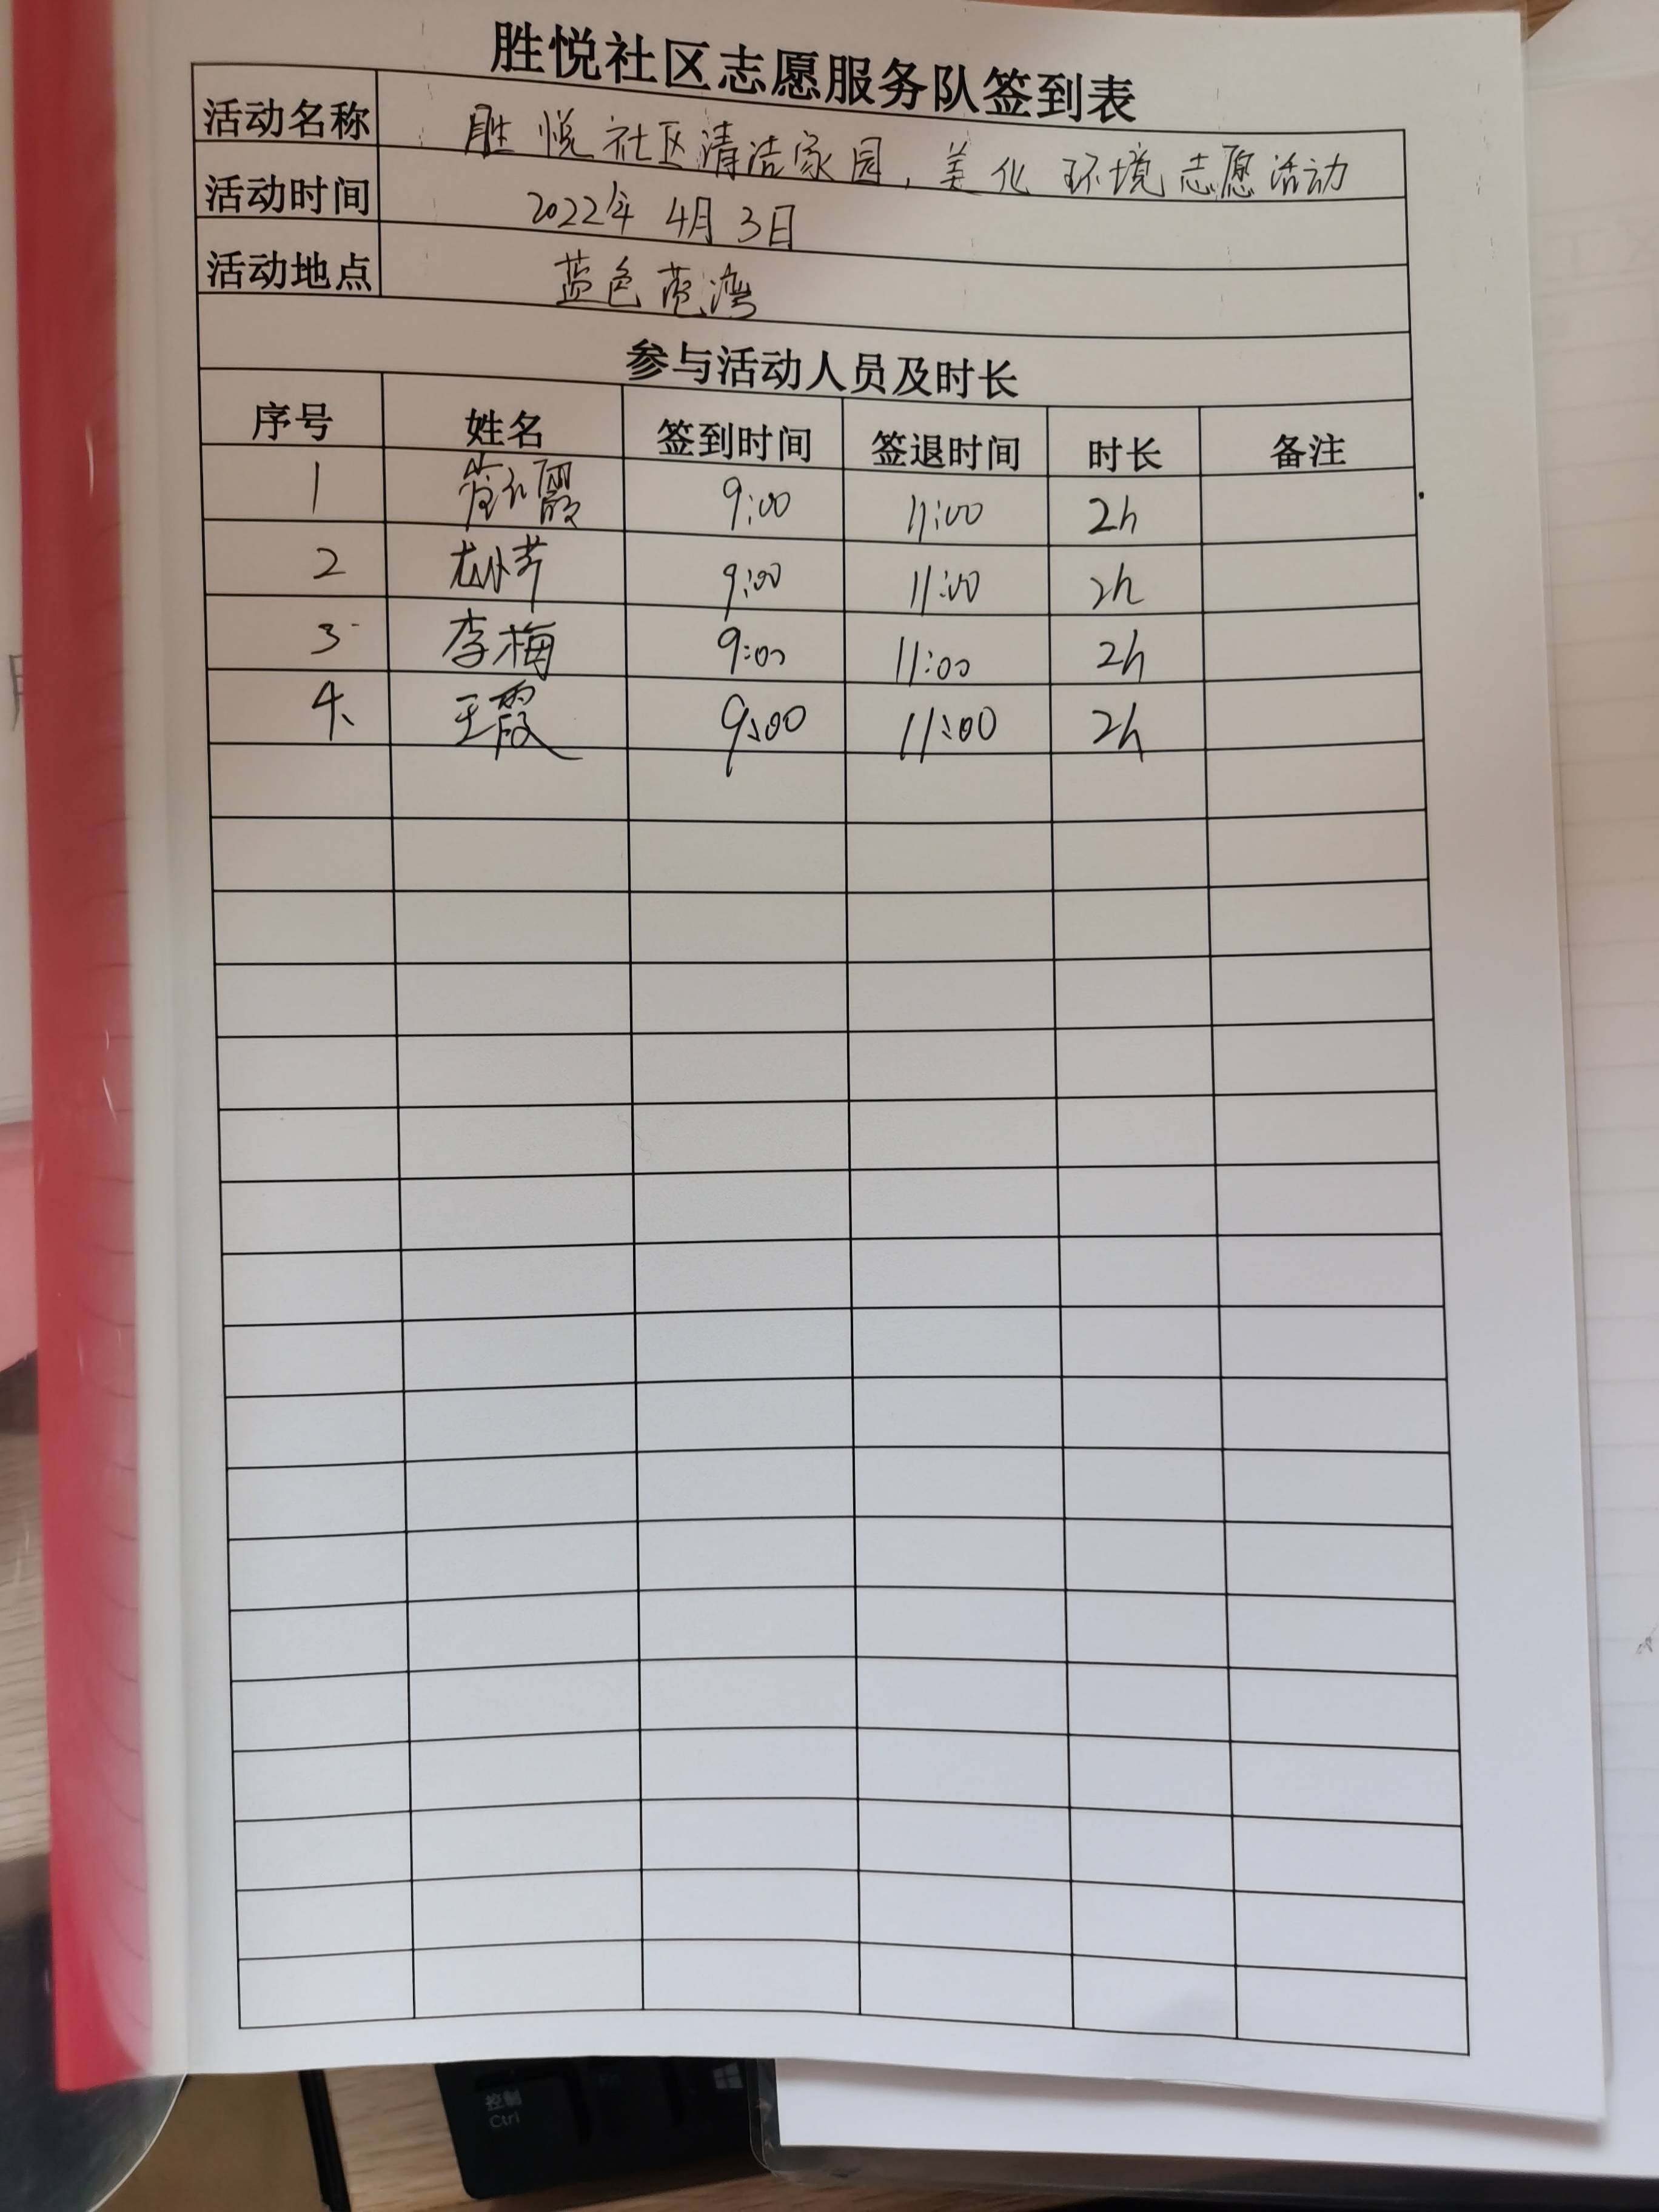 胜悦社区志愿服务队签到表
活动名称 胜悦社区清洁家园，美化环境志愿活动
活动时间 2022年4月3日
活动地点 蓝色范湾
参与活动人员及时长
序号 姓名 签到时间 签退时间 时长 备注
1 9:00 11:00 2h
2 9:00 11:00 2h
3 李梅 9:00 11:00 2h
4、 王霞 9:00 11:00 2h
控制
Ctrl